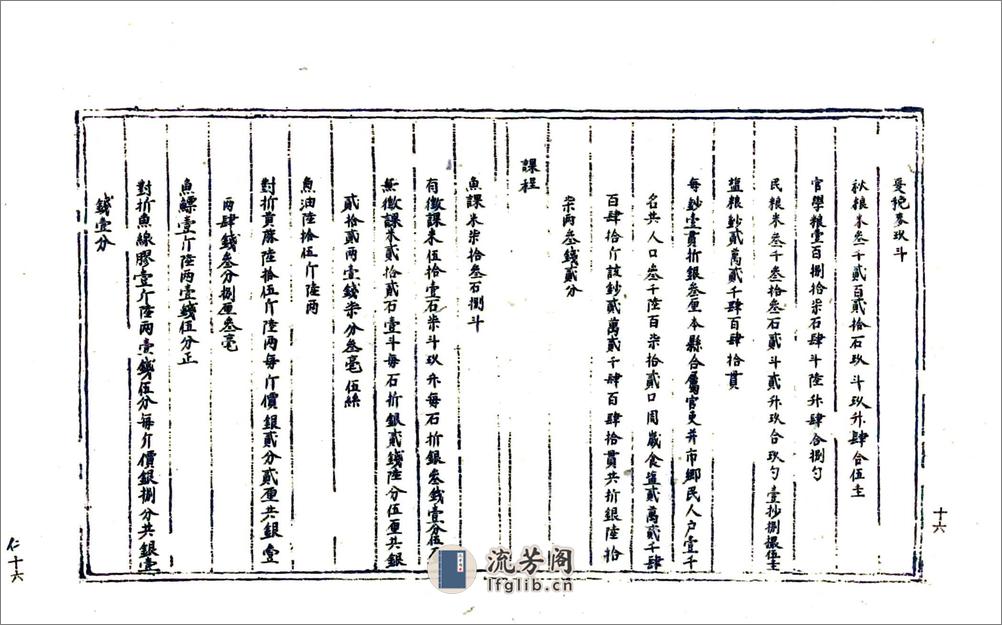 憂免麥玖斗
秋粮米叁千貳百貳拾石玖斗玖升肆合伍圭
官學粮壹百捌拾柒石肆斗陸升肆合捌勺
民粮米叁千叁拾叁石貳斗貳升玖合玖勺壹抄捌撮伍圭
塩粮鈔貳萬貳千肆百肆拾貫
每鈔壹貫折銀叁厘本縣合屬官吏并市鄉民人户壹千
名共人口叁千陸百柒拾貳口周歲食塩貳萬貳千肆
百肆拾斤該鈔貳萬貳千肆百肆拾貫共折銀陸拾
柒兩叁錢貳分
課程
魚課米柒拾叁石捌斗
有徵課米伍拾壹石柒斗玖升每石折銀叁錢壹分伍厘
無徵課米貳拾貳石壹斗每石折銀貳錢陸分伍厘共銀
貳拾貳兩壹錢柒分叁毫伍絲
魚油陸拾伍斤陸兩
對折黄蔴陸拾伍斤陸兩每斤價銀貳分貳厘共銀壹
兩肆錢叁分捌厘叁毫
魚鰾壹斤陸兩壹錢伍分正
對折魚線膠壹斤陸兩壹錢伍分每斤價銀捌分共銀壹
錢壹分
十六
仁十六
流芳阁
lfglib.cn